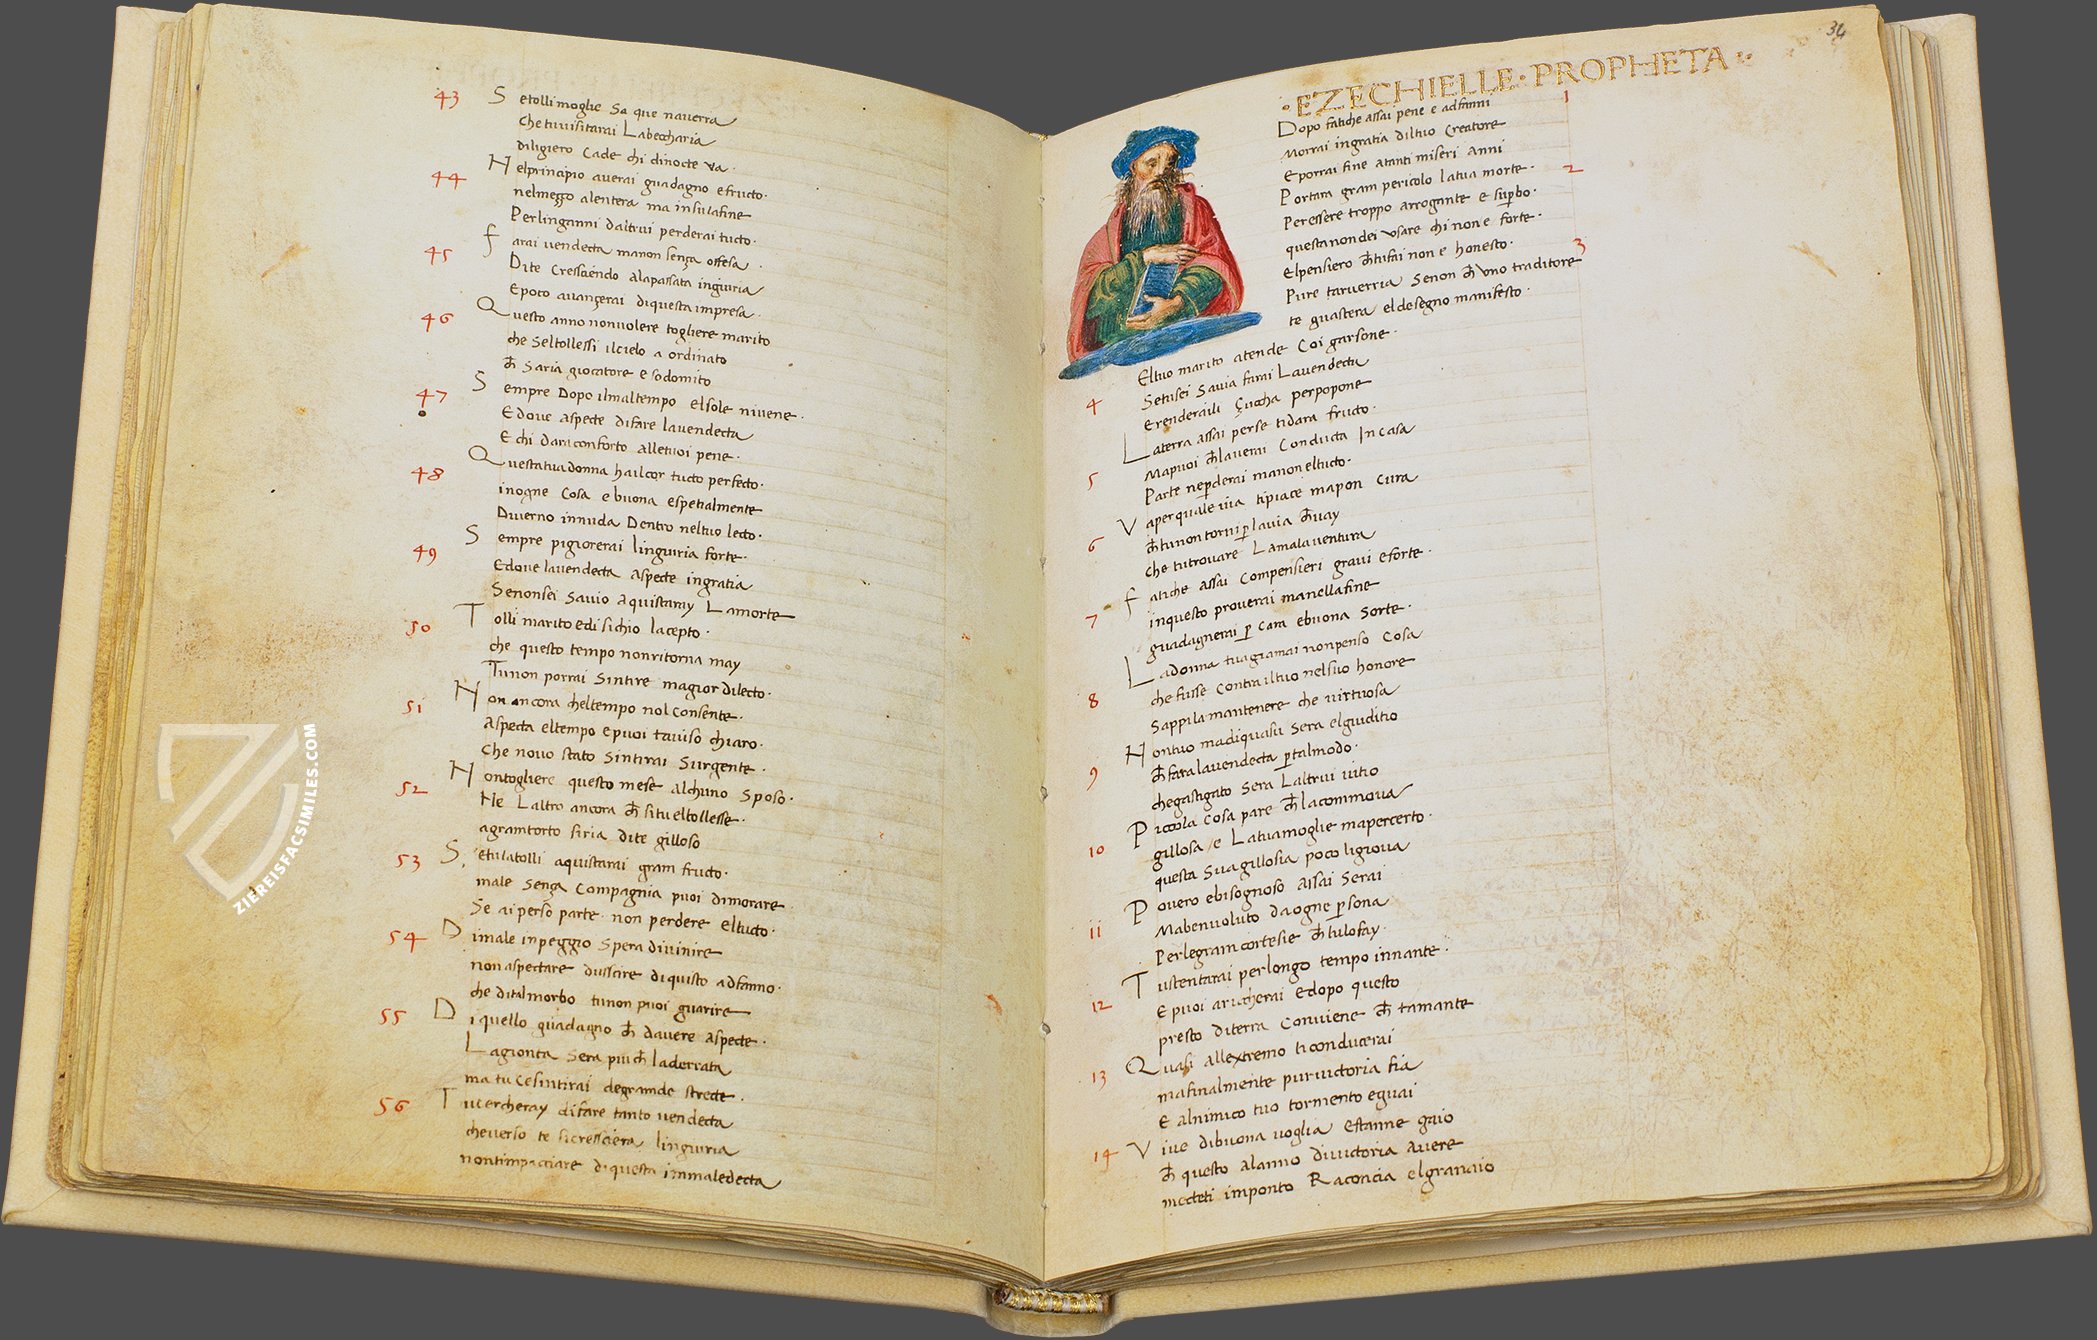 43
Setolli moglie Sa que nauerra
Che tu uisitarai Labeccharia
Diligiero Cade chi dinocte va ·
44
Nel principio auerai guadagno e fructo ·
nelmeço alentera ma insulafine
Perlinganni daltrui perderai tucto ·
45
Farai uendecta manon sença offesa ·
Dite Cresciendo alapassata ingiuria
Epoco auançerai diquesta impresa ·
46
Questo anno nonuolere togliere marito
che Seltollessi ilcielo a ordinato
ch̄ Saria giocatore e sodomito
47
Sempre Dopo ilmaltempo elsole niuene ·
Edoue aspecte difare lauendecta
E chi dara conforto alletuoi pene ·
48
Questa tua donna hailcor tucto perfecto ·
inogne Cosa e buona espetialmente
Diuerno innuda Dentro neltuo lecto ·
49
Sempre pigiorerai lingiuria forte ·
Edoue lauendecta aspecte ingratia
Senonsei Sauio aquistaray Lamorte
50
Tolli marito edisichio lacepto ·
che questo tempo nonritorna may
Tunon porrai Sintire magior dilecto ·
51
Non ancora cheltempo nol consente ·
aspecta eltempo epuoi tauiso chiaro ·
Che nouo stato Sintirai Surgente ·
52
Nontogliere questo mese alchuno Sposo ·
Ne Laltro ancora ch̄ situeltollesse ·
agramtorto siria dite gilloso
53
Setulatolli aquistarai gram fructo ·
male Sença Compagnia puoi dimorare ·
Se ai perso parte · non perdere eltucto ·
54
Dimale inpeggio Spera diuinire
non aspectare duscire diquisto adfanno ·
che dital morbo tunon puoi guarire
55
Di quello guadagno ch̄ dauere aspecte ·
Lagionta Sera piuch̄ laderrata
ma tu Cesintirai degrande strecte ·
56
Tu cercheray difare tanto uendecta
cheuerso te sicressciera linguiria
nontimpacciare diquesta inmaledecta
34
· EZECHIELLE · PROPHETA ·
1
Dopo fatiche assai pene e adfanni
Morrai ingratia diltuo Creatore
Eporrai fine atanti miseri anni
2
Portara gram pericolo latua morte ·
Peressere troppo arrogante e sup̱bo ·
questa nondei usare chi none forte ·
3
Elpensiero ch̄tufai non e honesto ·
Pure taruerria Senon ch̄ uno traditore
te guastera el desegno manifesto ·
4
Eltuo marito atende Coi garsone ·
Setusei Sauia farai Lauendecta
Erenderaili Çuccha perpopone
5
Laterra assai perse tidara fructo ·
Mapuoi ch̄lauerai Conducta Incasa
Parte nep̱derai manon eltucto ·
6
Va per quale uia tipiace mapon cura
ch̄tunon torni p̱ lauia ch̄uay
Che tutrouare Lamala uentura
7
Fatiche assai Compensieri graui eforte ·
inquesto prouerai manellafine
guadagnerai p̱ Cara ebuona Sorte ·
8
Ladonna tua giamai nonpenso Cosa
che fusse Contra iltuo nelsuo honore
Sappila mantenere che uirtuosa
9
Nontuo madiquasu Sera elgiuditio
ch̄fara lauendecta p̱talmodo ·
chegastigato Sera Laltrui uitio
10
Piccola Cosa pare ch̄lacommoua
gillosa e Latuamoglie mapercerto ·
questa Sua gillosia poco ligioua
11
Pouero ebisognoso assai Serai
Mabenuoluto da ogne p̱sona
Perlegram cortesie ch̄tulofay ·
12
Tustentarai perlongo tempo innante ·
E puoi aricherai Edopo questo
presto diterra Conuiene ch̄ tamante
13
Quasi allextremo ticonducerai
mafinalmente puruictoria fia
E alnimico tuo tormento eguai
14
Viue dibuona uoglia Estanne gaio
ch̄ questo alanno diuictoria auere
mecteti imponto Raconcia elgranaio
ZIEREISFACSIMILES.COM